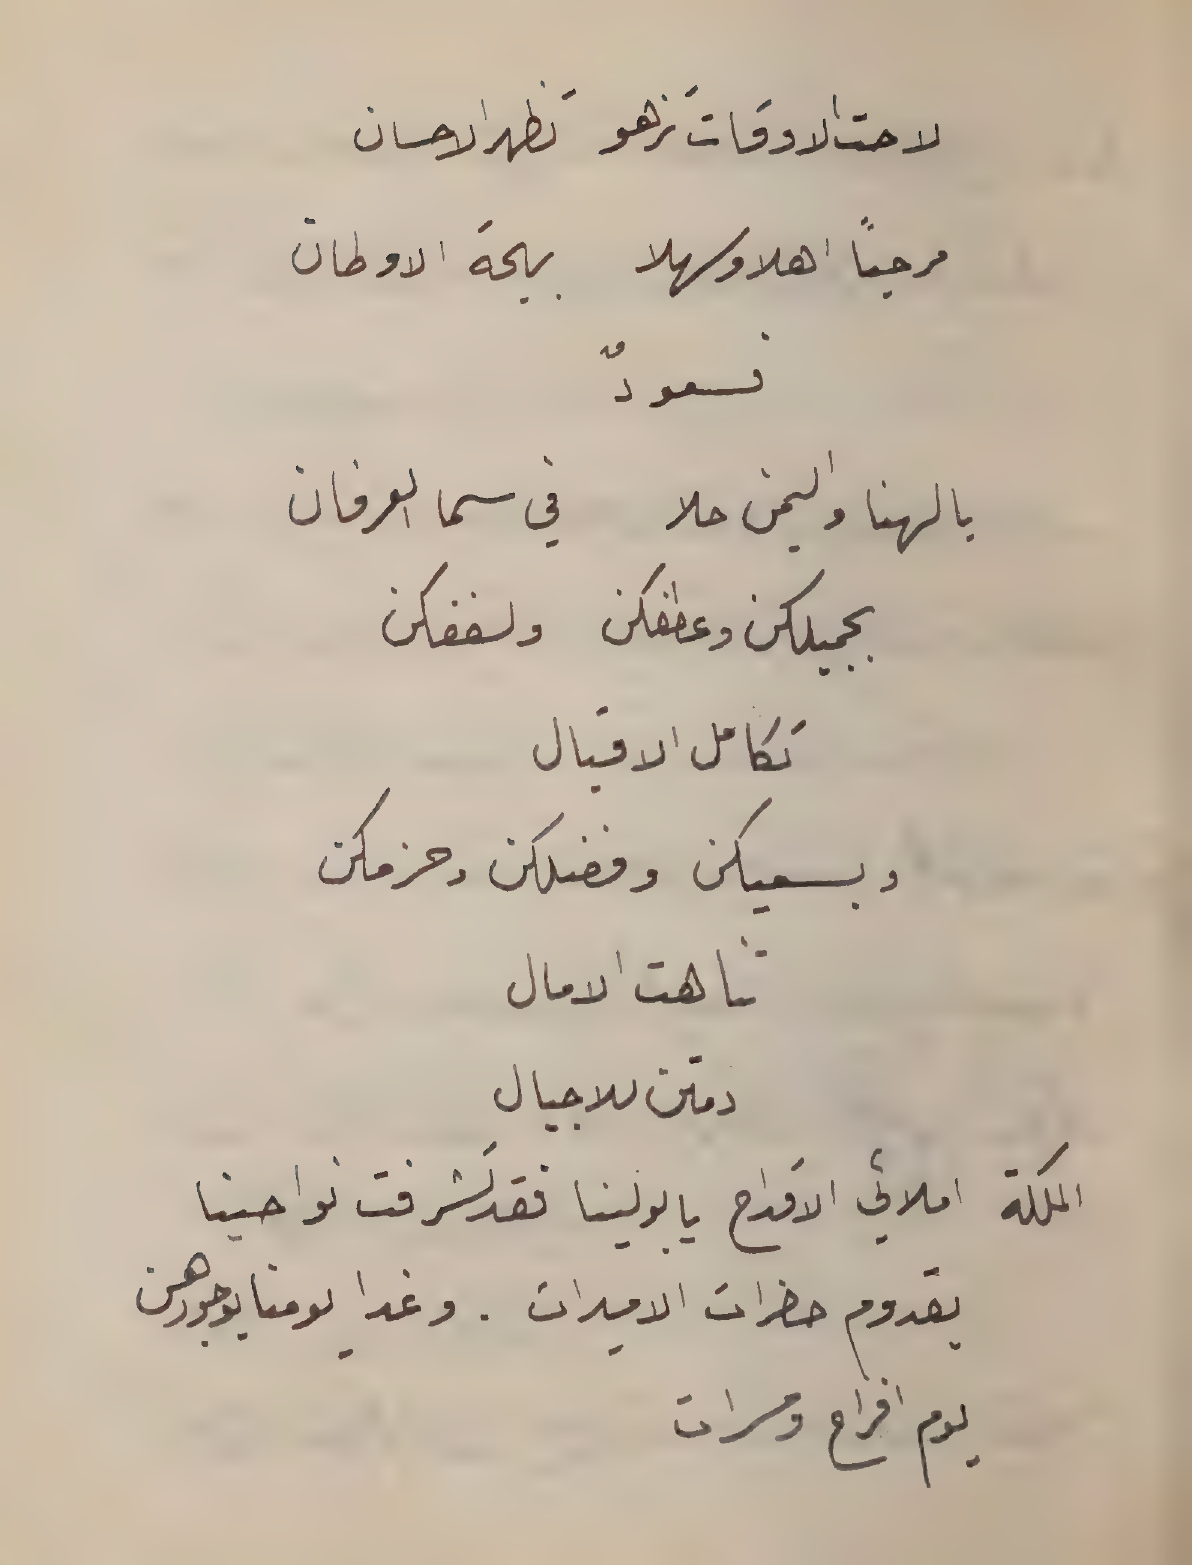 لاحت الاوقات تزهو تظهر الاحسان
مرحباً اهلا وسهلا بهجة الاوطان
فسعودٌ
بالهنا واليمن حلا في سما العرفان
بجميلكن وعطفكن ولطفكن
تكامل الاقبال
وبسعيكن وفضلكن وحزمكن
تناهت الامال
دمتن للاجيال
الملكة املائي الاقداح يا بولينا فقد تشرفت نواحينا
بقدوم حضرات الاميرات . وغدا يومنا بوجودهن
يوم افراح ومسرات